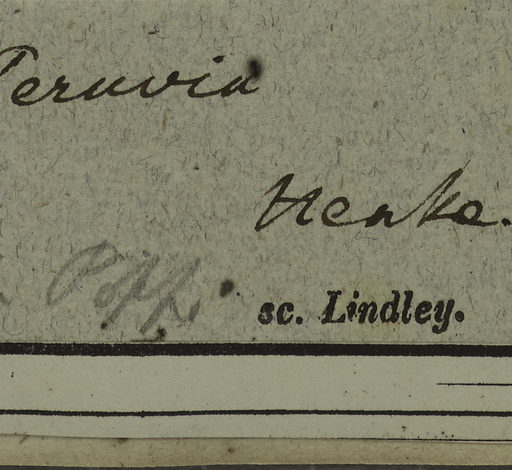 Peruvia
Henke.
Pöpp.
sc. Lindley.